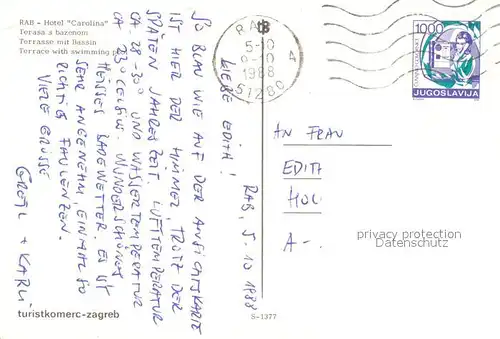 RAB - Hotel "Carolina"
Terasa s bazenom
Terrasse mit Bassin
Terrace with swimming
RAB, 5.10 1988
LIEBE EDITH!
SO BLAU WIE AUF DER ANSICHTSKARTE
IST HIER DER HIMMEL, TROTZ DER
SPÄTEN JAHRESZEIT. LUFTTEMPERATUR
CA. 28-30° UND WASSERTEMPERATUR
CA. 23° CELSIUS. WUNDERSCHÖNES
HEISSES BADEWETTER. ES IST
SEHR ANGENEHM, EINMAL SO
RICHTIG FAULENZEN.
VIELE GRÜSSE
GRETL + KARLI
turistkomerc-zagreb
S-1377
RAB
5-10
1988
51280
1000
JUGOSLAVIJA
AN FRAU
EDITH
A-
privacy protection
Datenschutz